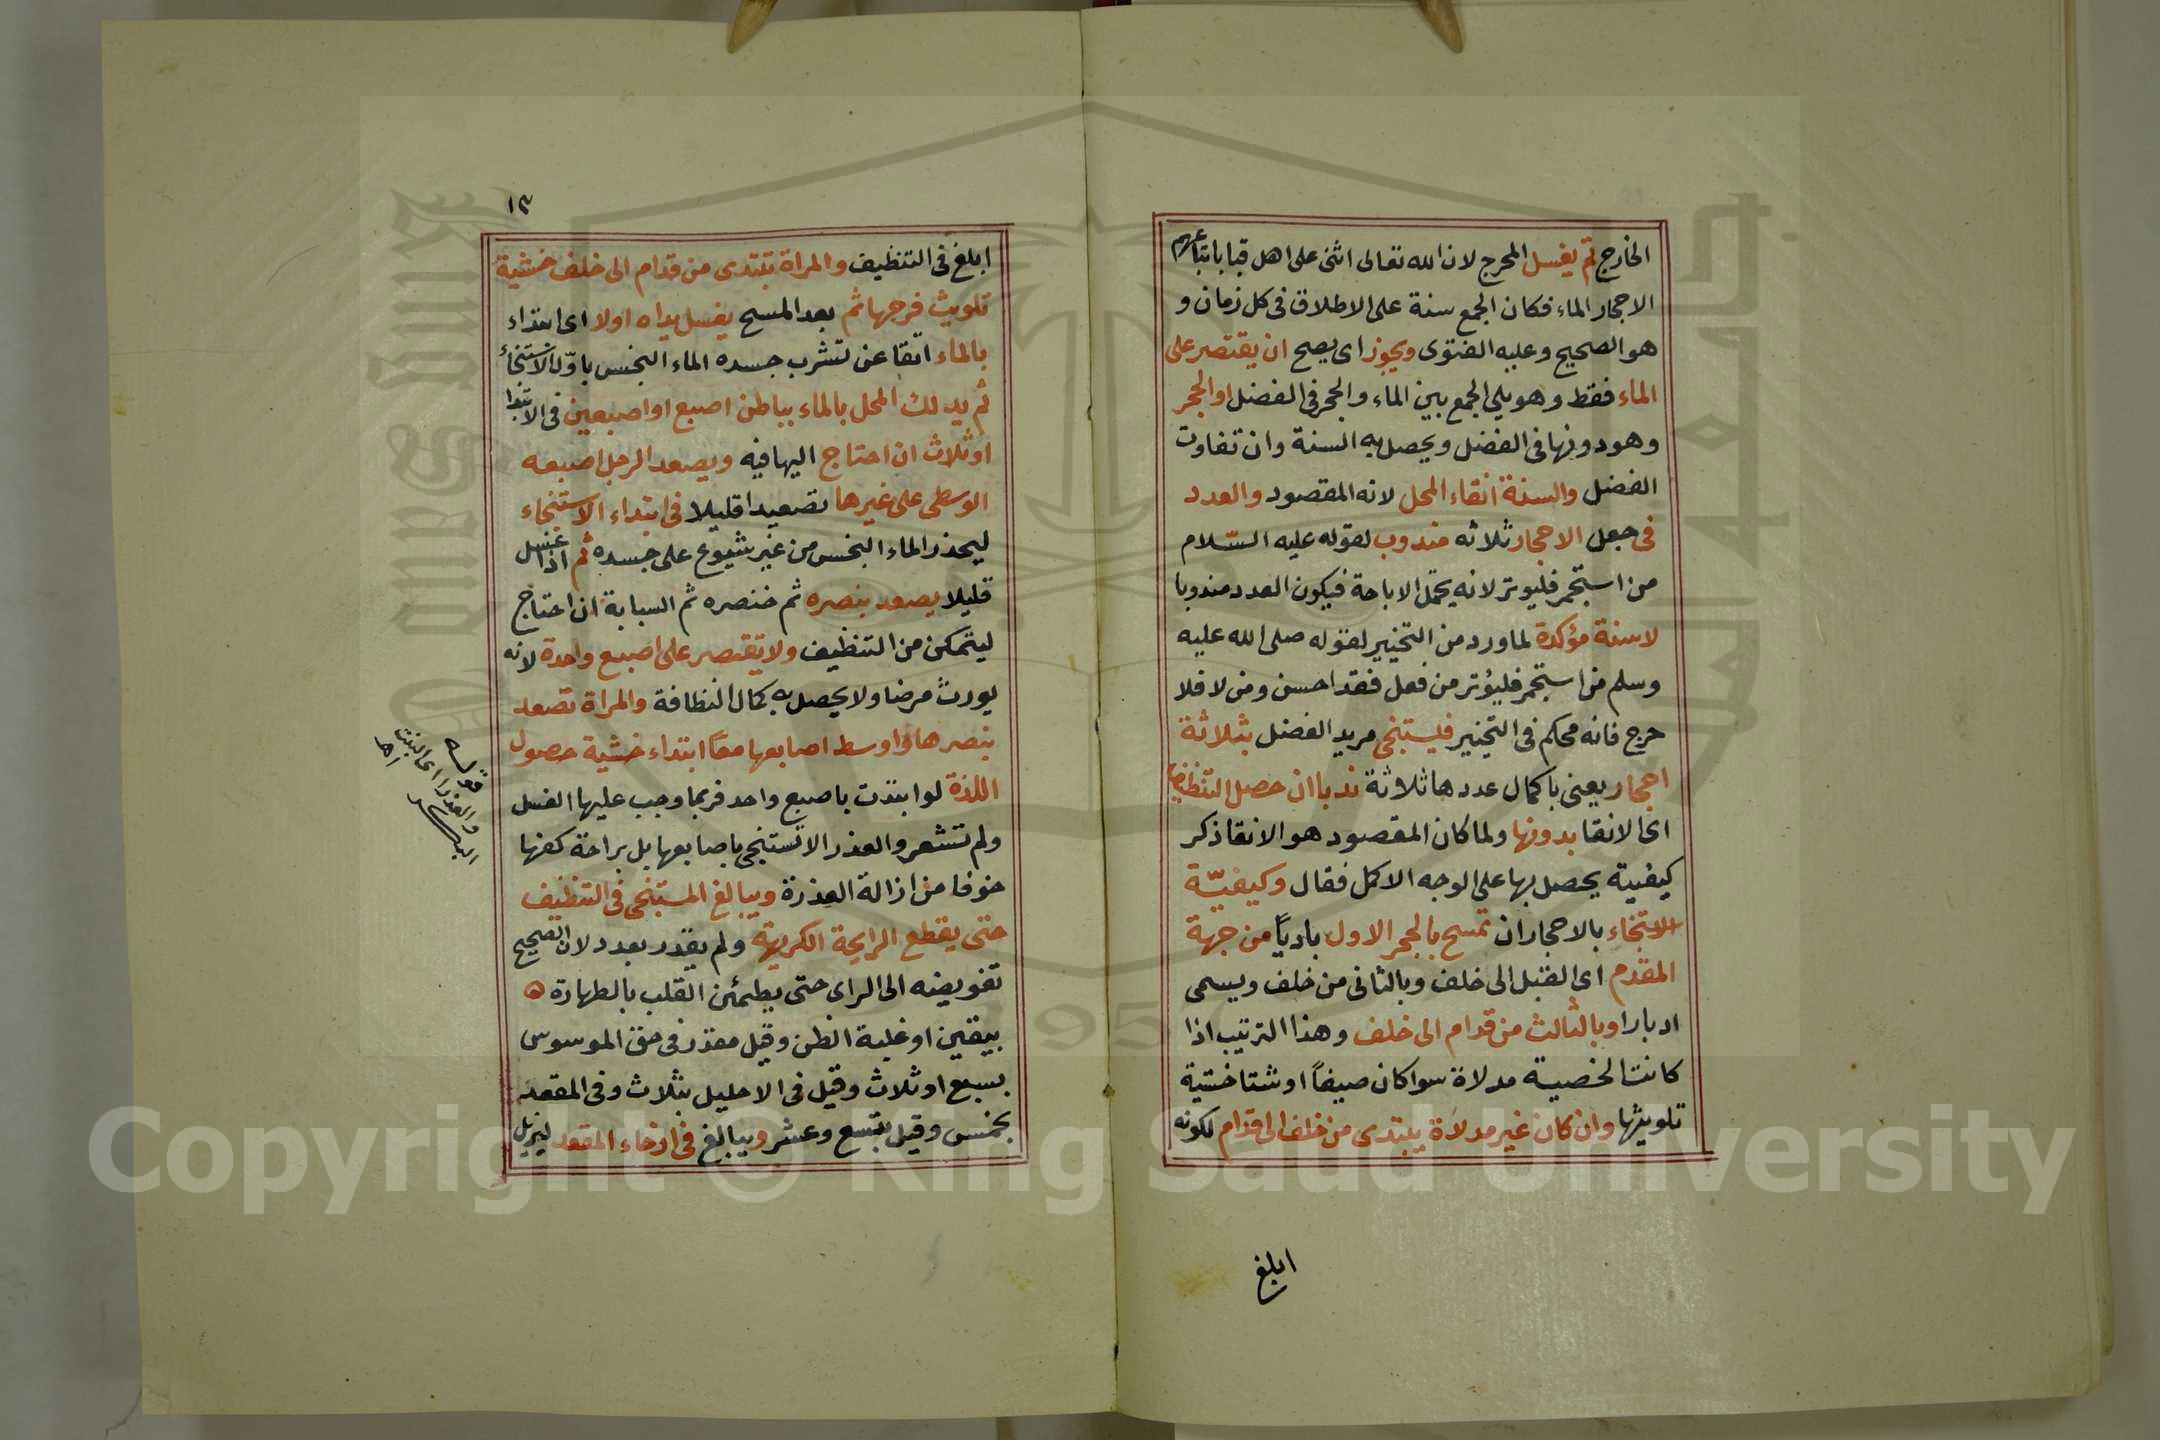 الخارج ثم يغسل المخرج لان الله تعالى اثنى على اهل قبا باتباعهم
الاحجار الماء فكان الجمع سنة على الاطلاق فى كل زمان و
هو الصحيح وعليه الفتوى ويجوز اى يصح ان يقتصر على
الماء فقط وهو يلى الجمع بين الماء والحجر فى الفضل او الحجر
وهو دونها فى الفضل ويحصل به السنة وان تفاوت
الفضل والسنة انقاء المحل لانه المقصود والعدد
فى جعل الاحجار ثلاثه مندوب لقوله عليه السّلام
من استجمر فليوتر لانه يحتمل الاباحة فيكون العدد مندوبا
لا سنة مؤكدة لما ورد من التخيير لقوله صلى الله عليه
وسلم من استجمر فليؤتر من فعل فقد احسن ومن لا فلا
حرج فانه محكم فى التخيير فليستنجى مريد الفضل بثلاثة
احجار يعنى باكمال عددها ثلاثة ندبا ان حصل التنظيف
اى الانقا بدونها ولما كان المقصود هو الانقا ذكر
كيفية يحصل بها على الوجه الاكمل فقال وكيفيّة
الاستنجاء بالاحجار ان تمسح بالحجر الاول باديًا من جهة
المقدم اى القبل الى خلف وبالثانى من خلف ويسمى
ادبارا وبالثالث من قدام الى خلف وهذا الترتيب اذا
كانت الخصية مدلاة سوا كان صيفًا او شتا خشية
تلويثها وان كان غير مدلاة يبتدى من خلف الى قدام لكونه
ابلغ
١٣
ابلغ فى التنظيف والمراة تبتدى من قدام الى خلف خشية
تلويث فرجها ثم بعد المسح يغسل يداه اولا اى ابتداء
بالماء اتقا عن تشرب جسده الماء النجس باوّل الاستنجاء
ثم يدلك المحل بالماء بباطن اصبع او اصبعين فى الابتدا
او ثلاث ان احتاج اليها فيه ويصعد الرجل اصبعه
الوسطى على غيرها تصعيدا قليلا فى ابتداء الاستنجاء
ليحذر الماء النجس من غير شيوع على جسده ثم اذا غسل
قليلا يصعد بنصره ثم خنصره ثم السبابة ان احتاج
ليتمكن من التنظيف ولا تقتصر على اصبع واحدة لانه
يورث مرضا ولا يحصل به كمال النظافة والمراة تصعد
بنصرها واوسط اصابعها معًا ابتداء خشية حصول
اللذة لو ابتدت باصبع واحد فربما وجب عليها الغسل
ولم تشعر والعذرا لا تستنجى باصابعها بل براحة كفها
خوفا من ازالة العذرة ويبالغ المستنجى فى التنظيف
حتى يقطع الرايحة الكريهة ولم يقدر بعدد لان الصحيح
تفويضه الى الراى حتى يطمئن القلب بالطهارة ه
بيقين او غلبة الظن وقيل مقدر فى حق الموسوس
بسبع او ثلاث وقيل فى الاحليل بثلاث وفى المقعد
بخمس وقيل بتسع وعشر ويبالغ فى ارخاء المقعد ليزيل
قوله
والعذرا اى البنت
البكر اهـ
Copyright © King Saud University